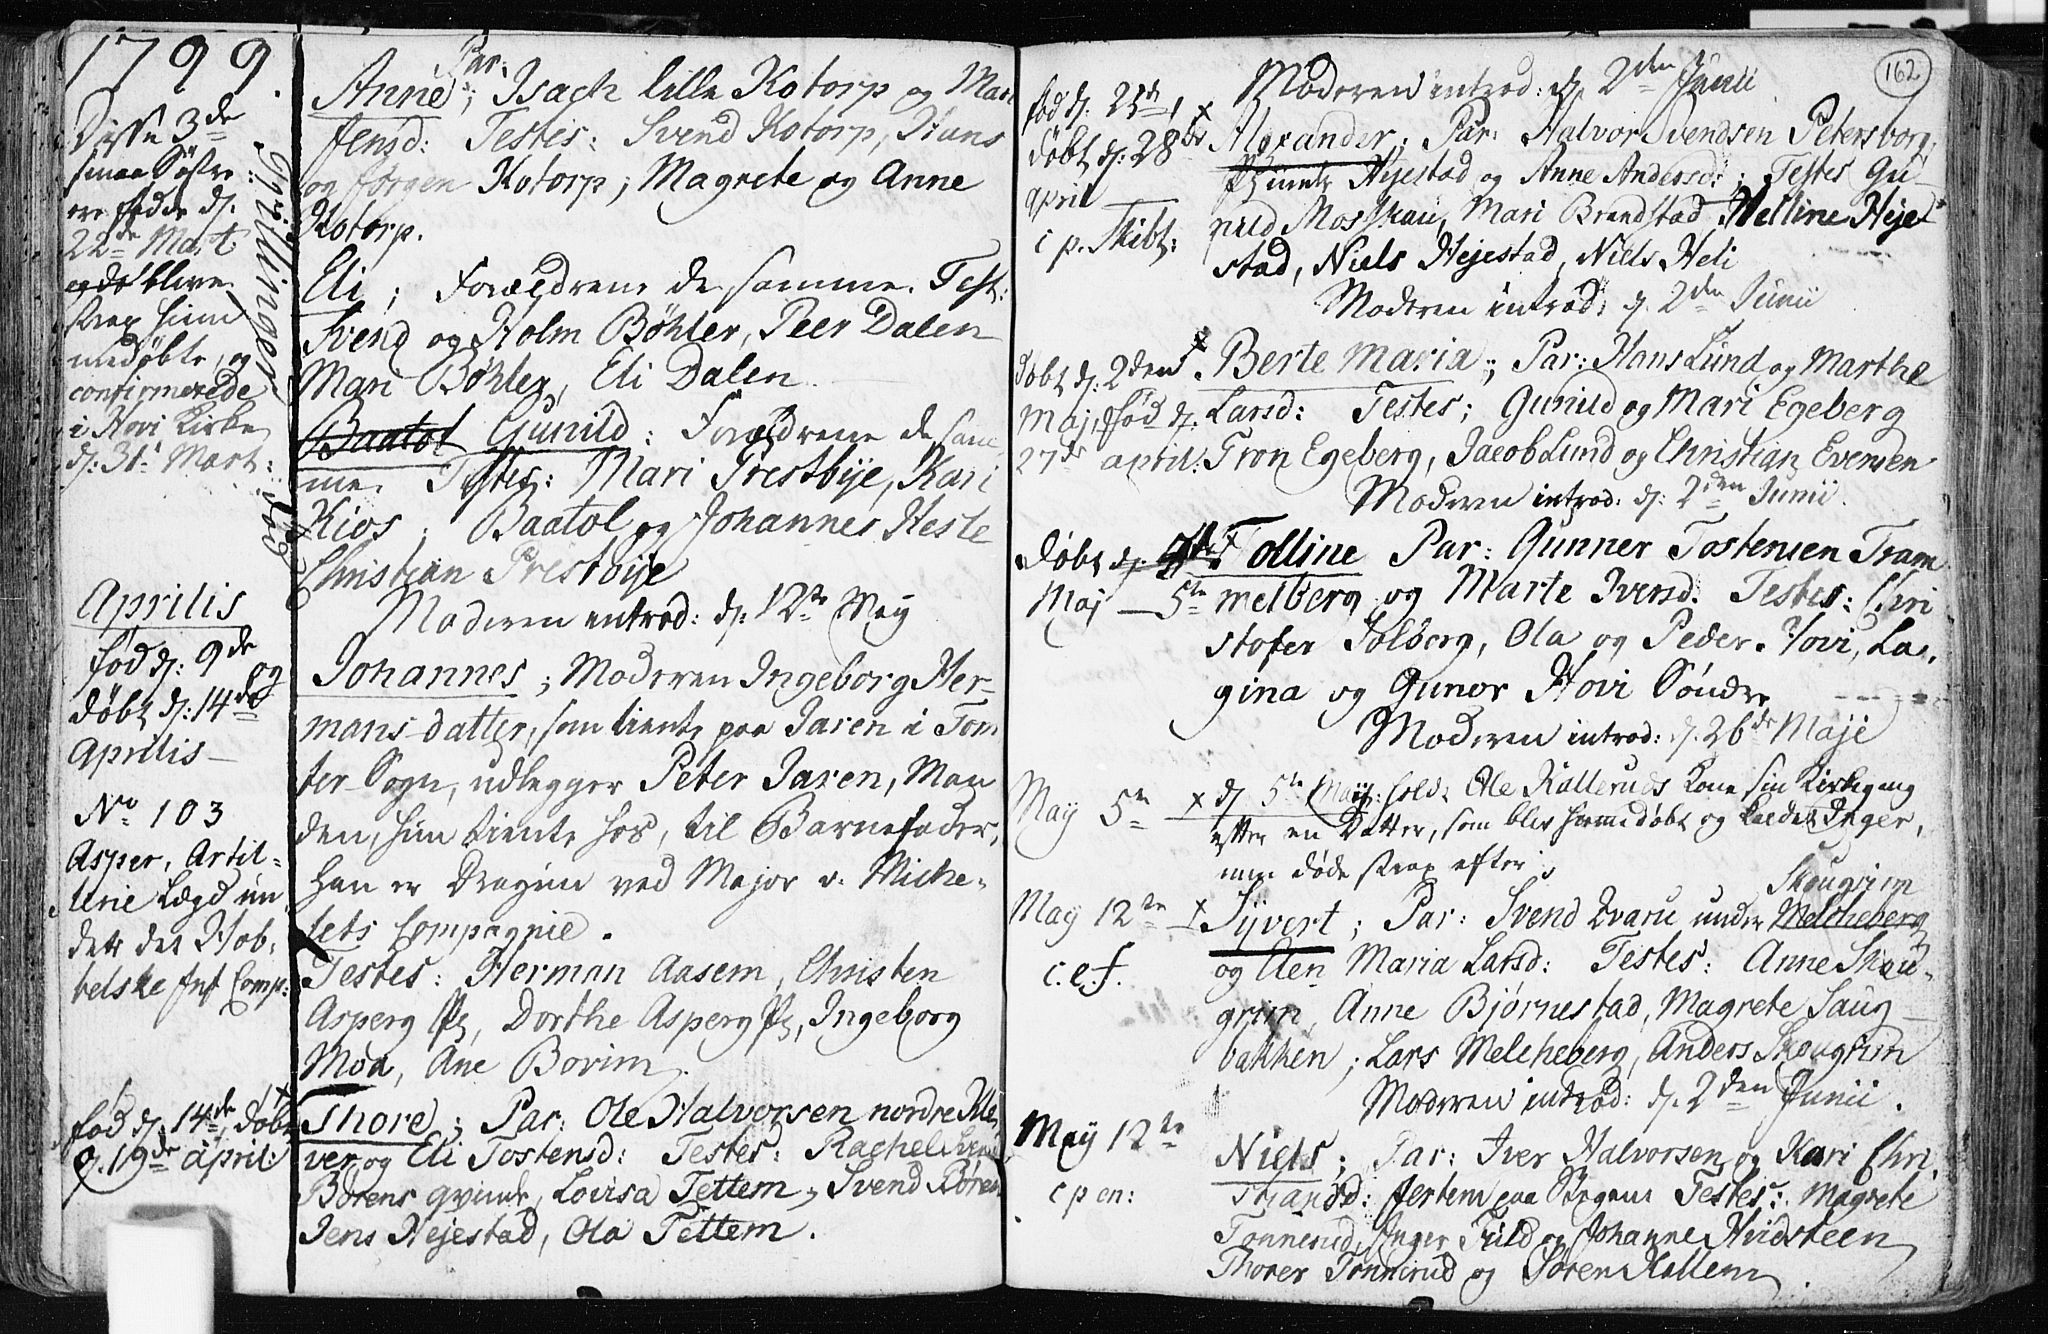 1799.
Disse 3de
smaa Søstre
ere fødde d.
22de Mart.
og da bleve
strax hiem
medøbte, og
confirmerede
i Hovi Kirke
d: 31te Mart:
Trillinger
Par:
Anne; Isach lille Kotorp og Mari
Jensd: Testes: Svend Kotorp, Hans
og Jörgen Kotorp; Magrete og Anne
Kotorp.
Eli; Forældrene de samme. Test:
Svend og Holm Böhler, Peer Dalen
Mari Böhler, Eli Dalen
Baatol Gunild: Forældrene de sam
me. Testes: Mari Prestbye, Kari
Kios; Baatol og Johannes Heste
Christian Prestbye
Moderen introd: d: 12te May
Aprilis
fød d: 9de og
døbt d: 14de
Aprilis
No 103
Asper, Artil-
lerie Lægd un
der det Hob-
belske Inf Comp:
Johannes; Moderen Ingeborg Her-
mans datter, som tiente paa Jaren i Tom
ter Sogn, udlegger Peter Jaren, Man
den, hun tiente hos, til Barnefader,
han er Dragun ved Major v. Miche-
lets Compagnie.
Testes: Herman Aasem, Christen
Asperg, Dorthe Asperg, Ingeborg
Moa, Ane Borim
fød d: 14de, døbt
d. 19de April:
Thore; Par: Ole Halvorsen nordre Kle
ver og Eli Tostensd: Testes: Rachel Svend
Börens qvinde, Lovisa Tettem, Svend Bören
Jens Hejestad, Ola Tettem.
162
Moderen introd: d. 2den Junii
fød d: 25de,
døbt d: 28de
April
c p. Skibt:
Alexander; Par: Halvor Svendsen Petersborg,
Hejestad og Anne Andersd:; Testes Gu
nild Mosskau, Mari Brandstad, Helline Heje
stad, Niels Hejestad, Niels Heli
Moderen introd: d. 2den Junii
døbt d: 2den
Maj, fød d:
27de April:
Berte Maria; Par: Hans Lund og Marthe
Larsd: Testes; Gunild og Mari Egeberg
Tron Egeberg, Jacob Lund og Christian Evensen
Moderen introd: d: 2den Junii.
Døbt d:
Maj — 5te
Tolline Par: Gunner Tostensen Tram
melberg og Marte Iversd. Testes: Chri
stofer Solberg, Ola og Peder Hovi, La-
gina og Gunor Hovi Söndre
Moderen introd: d. 26de Maje
May 5te
d 5te Maij: holdt Ole Kalleruds Kone sin Kirkegang
efter en Datter, som blev hiemedøbt og kaldet Inger,
men døde strax efter.
May 12te
c.e.f.
Skougrim
Syvert; Par: Svend Svaru under Melcheberg
og Elen Maria Larsd: Testes: Anne Skou-
grim, Anne Björnestad, Magrete Saug
bakken; Lars Melcheberg, Anders Skougrim
Moderen introd: d. 2den Junii.
May 12te
c p en:
Niels; Par: Iver Halvorsen og Kari Chri
stiansd: Testes: Magrete
Tonnerud, Inger Fuld og Johanne Hvidsteen
Thorer Tonnerud og Sören Kallem